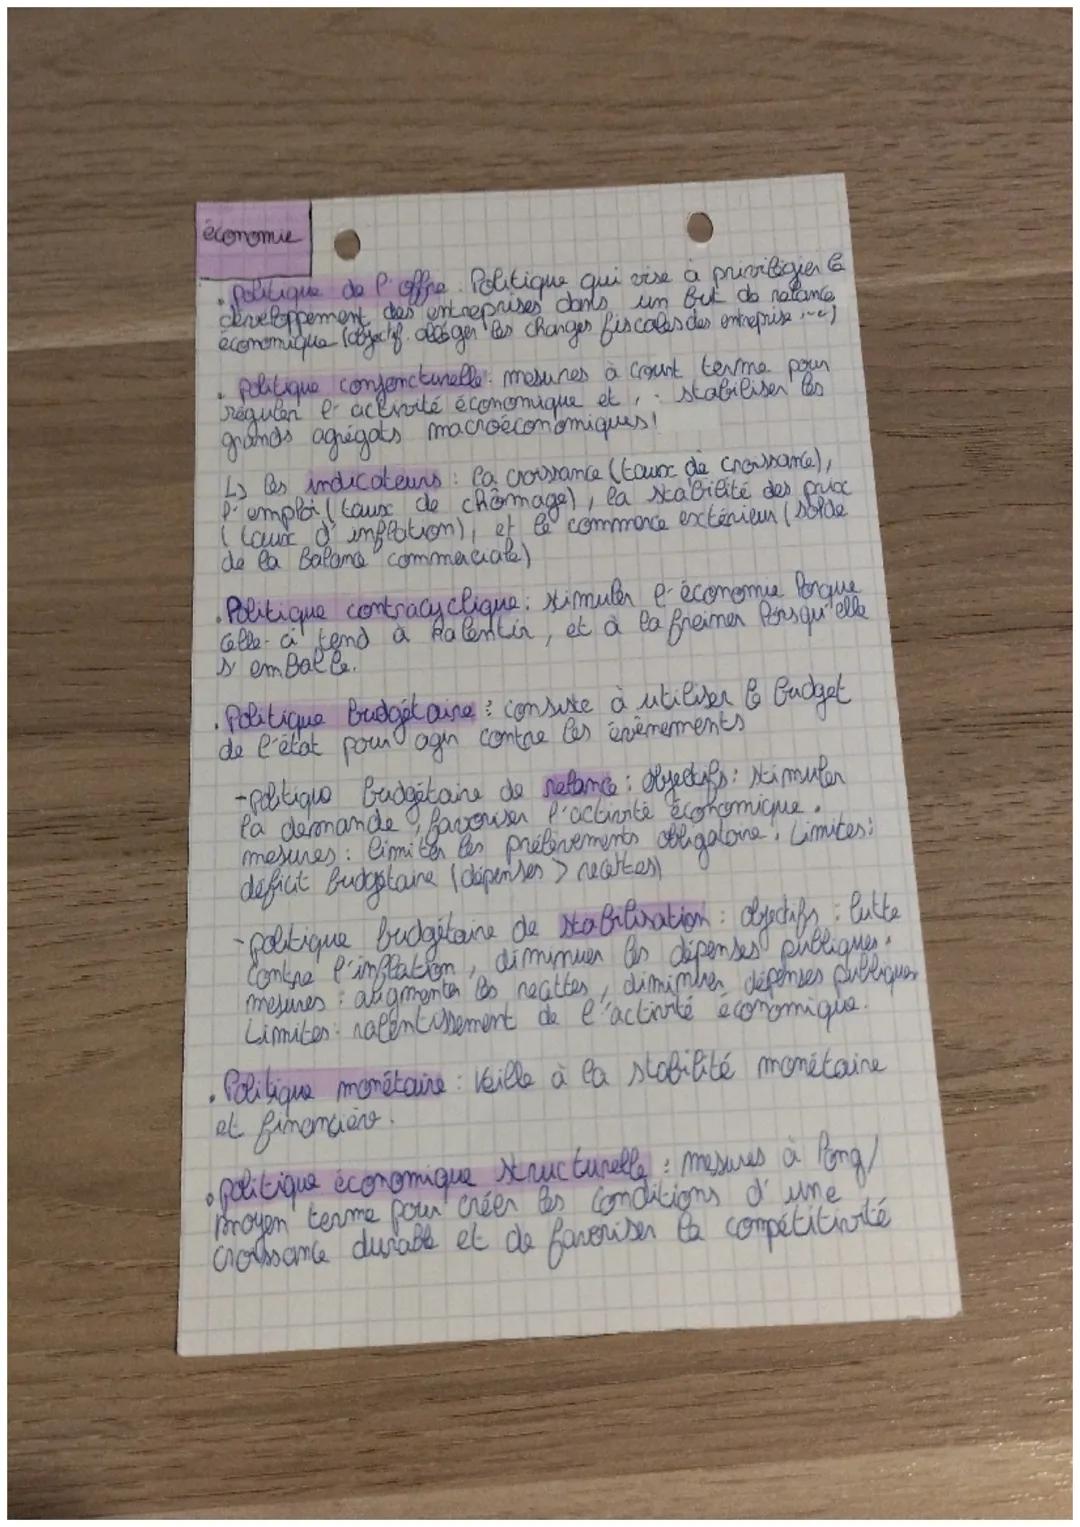 économie
. politique de l'offre : Politique qui vise à privilégier le
développement des entreprises dans un but de relance
économique (objectif : alléger les charges fiscales des entreprise, ...)
. politique conjoncturelle : mesures à court terme pour
réguler l'activité économique et stabiliser les
grands agrégats macroéconomiques!
L> les indicateurs : la croissance (taux de croissance),
l'emploi (taux de chômage), la stabilité des prix
(taux d'inflation), et le commerce extérieur (solde
de la balance commerciale)
. Politique contracyclique : stimuler l'économie lorsque
celle-ci tend à ralentir, et à la freiner lorsqu'elle
s'emballe.
. Politique budgétaire : consiste à utiliser le budget
de l'état pour agir contre les évènements
- politique budgétaire de relance : objectifs : stimuler
la demande, favoriser l'activité économique.
mesures : limiter les prélèvements obligatoire. Limites :
déficit budgétaire (dépenses > recettes)
- politique budgétaire de stabilisation : objectifs : lutte
contre l'inflation, diminuer les dépenses publiques.
mesures : augmenter les recettes, diminuer dépenses publiques
Limites : ralentissement de l'activité économique.
. Politique monétaire : Veille à la stabilité monétaire
et financière.
. politique économique structurelle : mesures à long/
moyen terme pour créer les conditions d'une
croissance durable et de favoriser la compétitivité